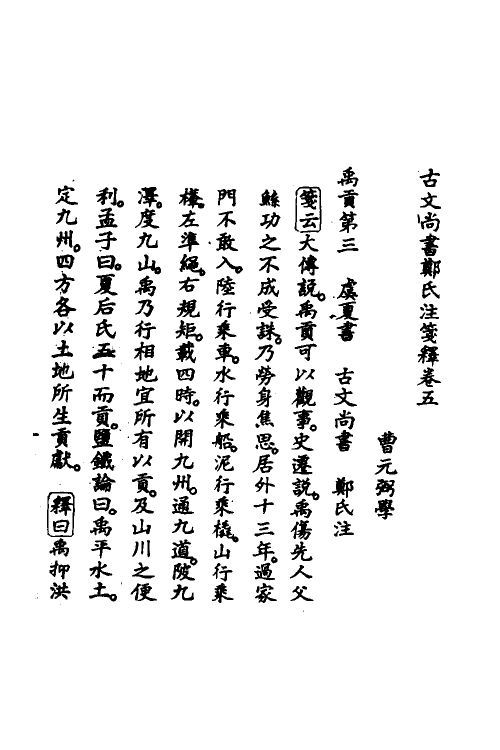 古文尚書鄭氏注箋釋卷五
曹元弼學
禹貢第三　虞夏書　古文尚書　鄭氏注
箋云大傳說。禹貢可以觀事。史遷說。禹傷先人父
鯀功之不成受誅。乃勞身焦思。居外十三年。過家
門不敢入。陸行乘車。水行乘船。泥行乘橇。山行乘
檋。左準繩。右規矩。載四時。以開九州。通九道。陂九
澤。度九山。禹乃行相地宜所有以貢。及山川之便
利。孟子曰。夏后氏五十而貢。鹽鐵論曰。禹平水土。
定九州。四方各以土地所生貢獻。釋曰禹抑洪